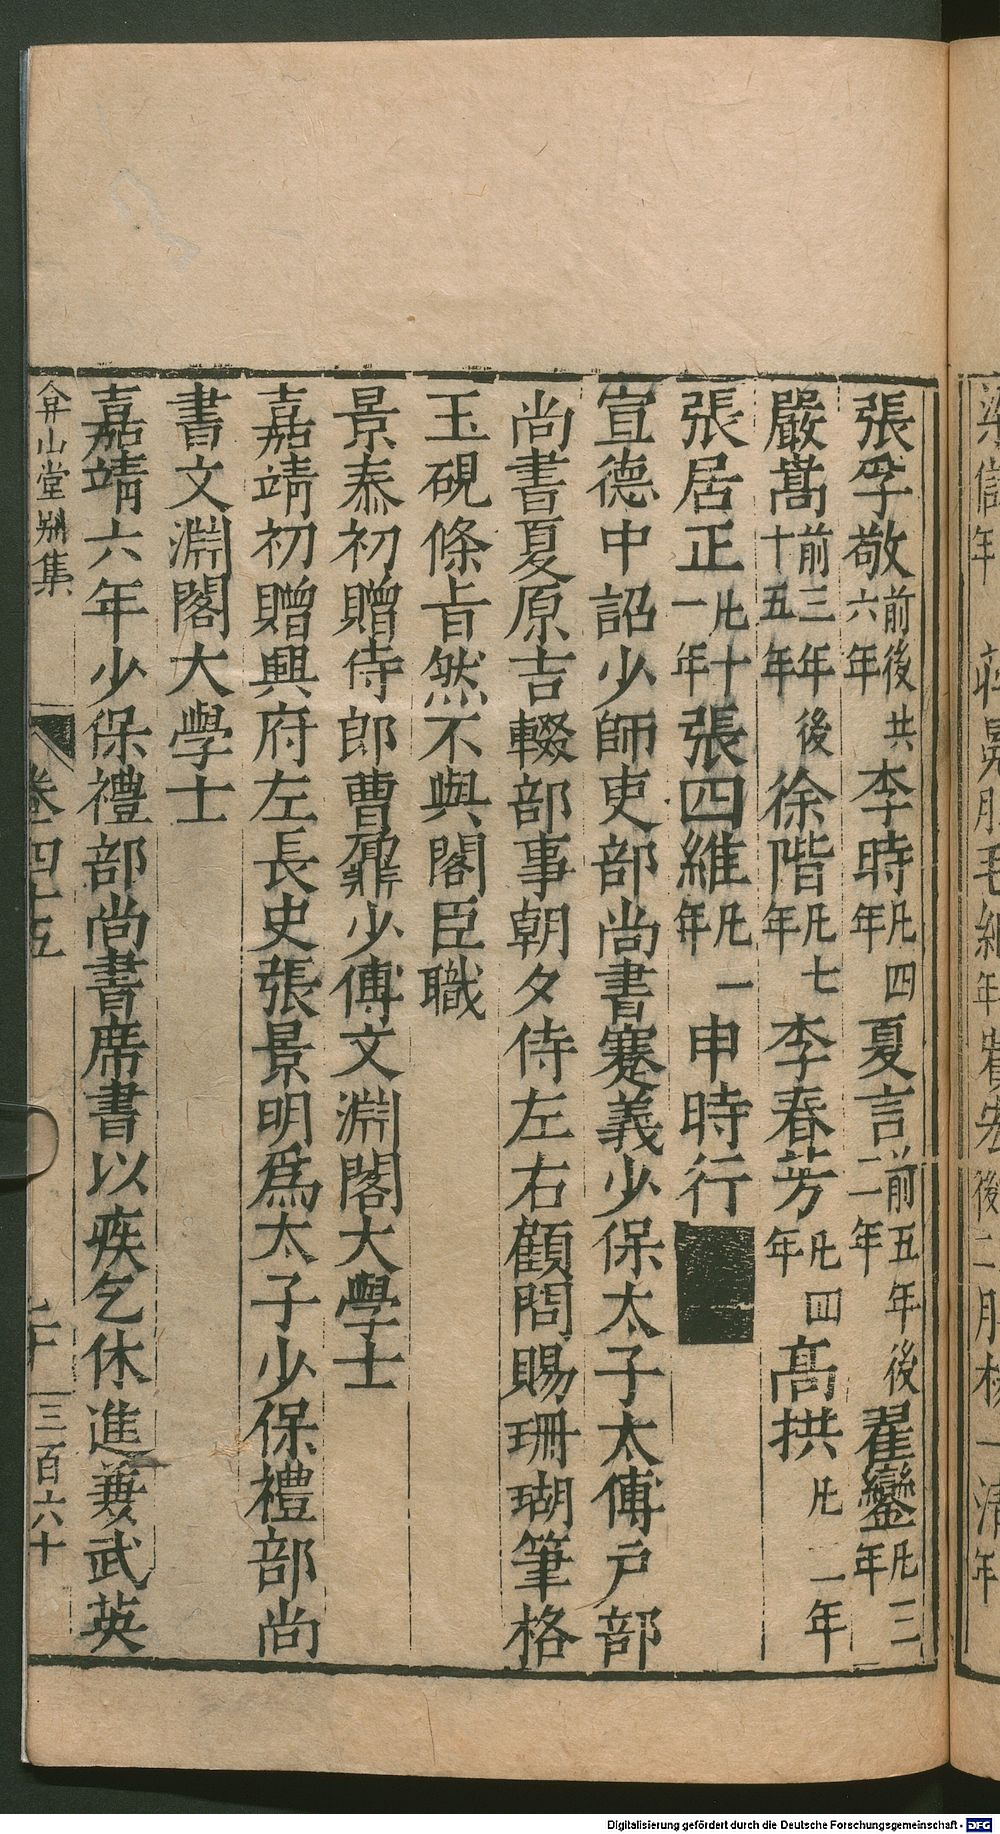 張孚敬前後共六年李時凡四年夏言前五年後二年翟鑾凡三年
嚴嵩前三年後十五年徐階凡七年李春芳凡四年高拱凡一年
張居正凡十一年張四維凡一年申時行
宣德中詔少師吏部尚書蹇義少保太子太傅戶部
尚書夏原吉輟部事朝夕侍左右顧問賜珊瑚筆格
玉硯條旨然不與閣臣職
景泰初贈侍郎曹鼐少傅文淵閣大學士
嘉靖初贈興府左長史張景明爲太子少保禮部尚
書文淵閣大學士
嘉靖六年少保禮部尚書席書以疾乞休進兼武英
弇山堂别集 卷四十五 三百六十
Digitalisierung gefördert durch die Deutsche Forschungsgemeinschaft - DFG